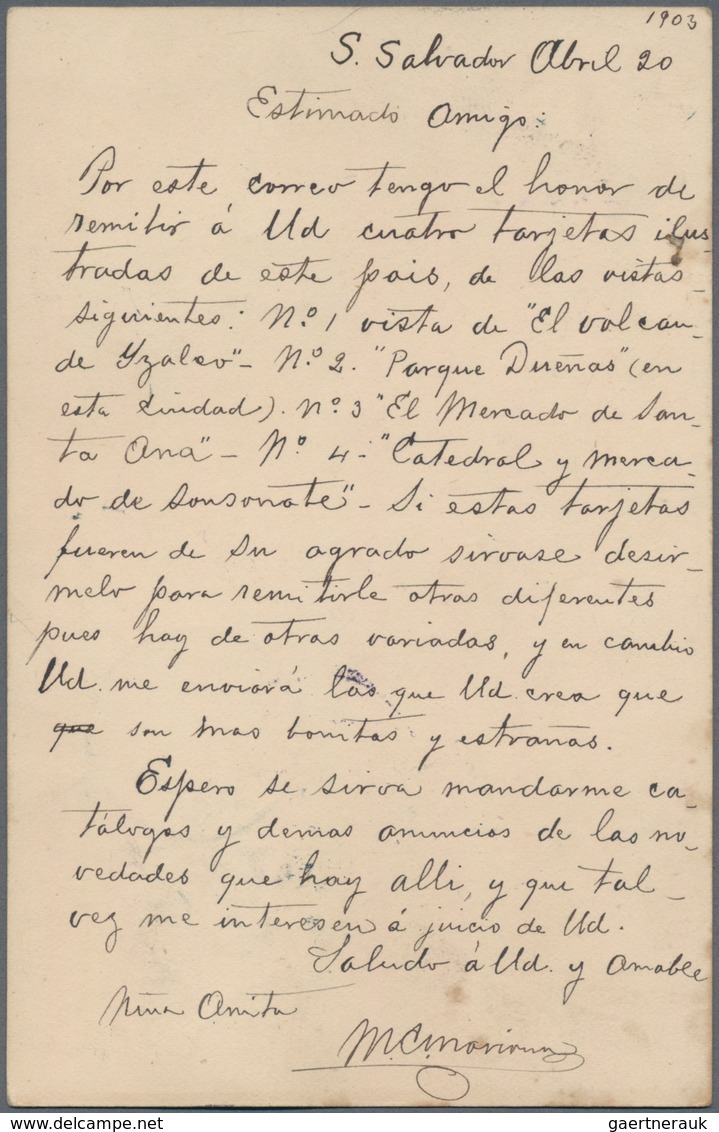 1903
S. Salvador Abril 20
Estimado Amigo:
Por este correo tengo el honor de
remitir á Ud cuatro tarjetas ilus-
tradas de este pais, de las vistas
siguientes: N.o 1 vista de "El volcan
de Yzalco" - N.o 2. "Parque Dueñas" (en
esta Ciudad). N.o 3 "El Mercado de San-
ta Ana" - N.o 4 - "Catedral y merca-
do de Sonsonate" - Si estas tarjetas
fueren de su agrado sirvase desir-
melo para remitirle otras diferentes
pues hay de otras variadas, y en cambio
Ud. me enviará las que Ud. crea que
que son mas bonitas y estrañas.
Espero se sirva mandarme ca-
tálogos y demas anuncios de las no-
vedades que hay alli, y que tal-
vez me interesen á juicio de Ud.
Saludo á Ud. y amable
Niña Anita
gaertnerauk